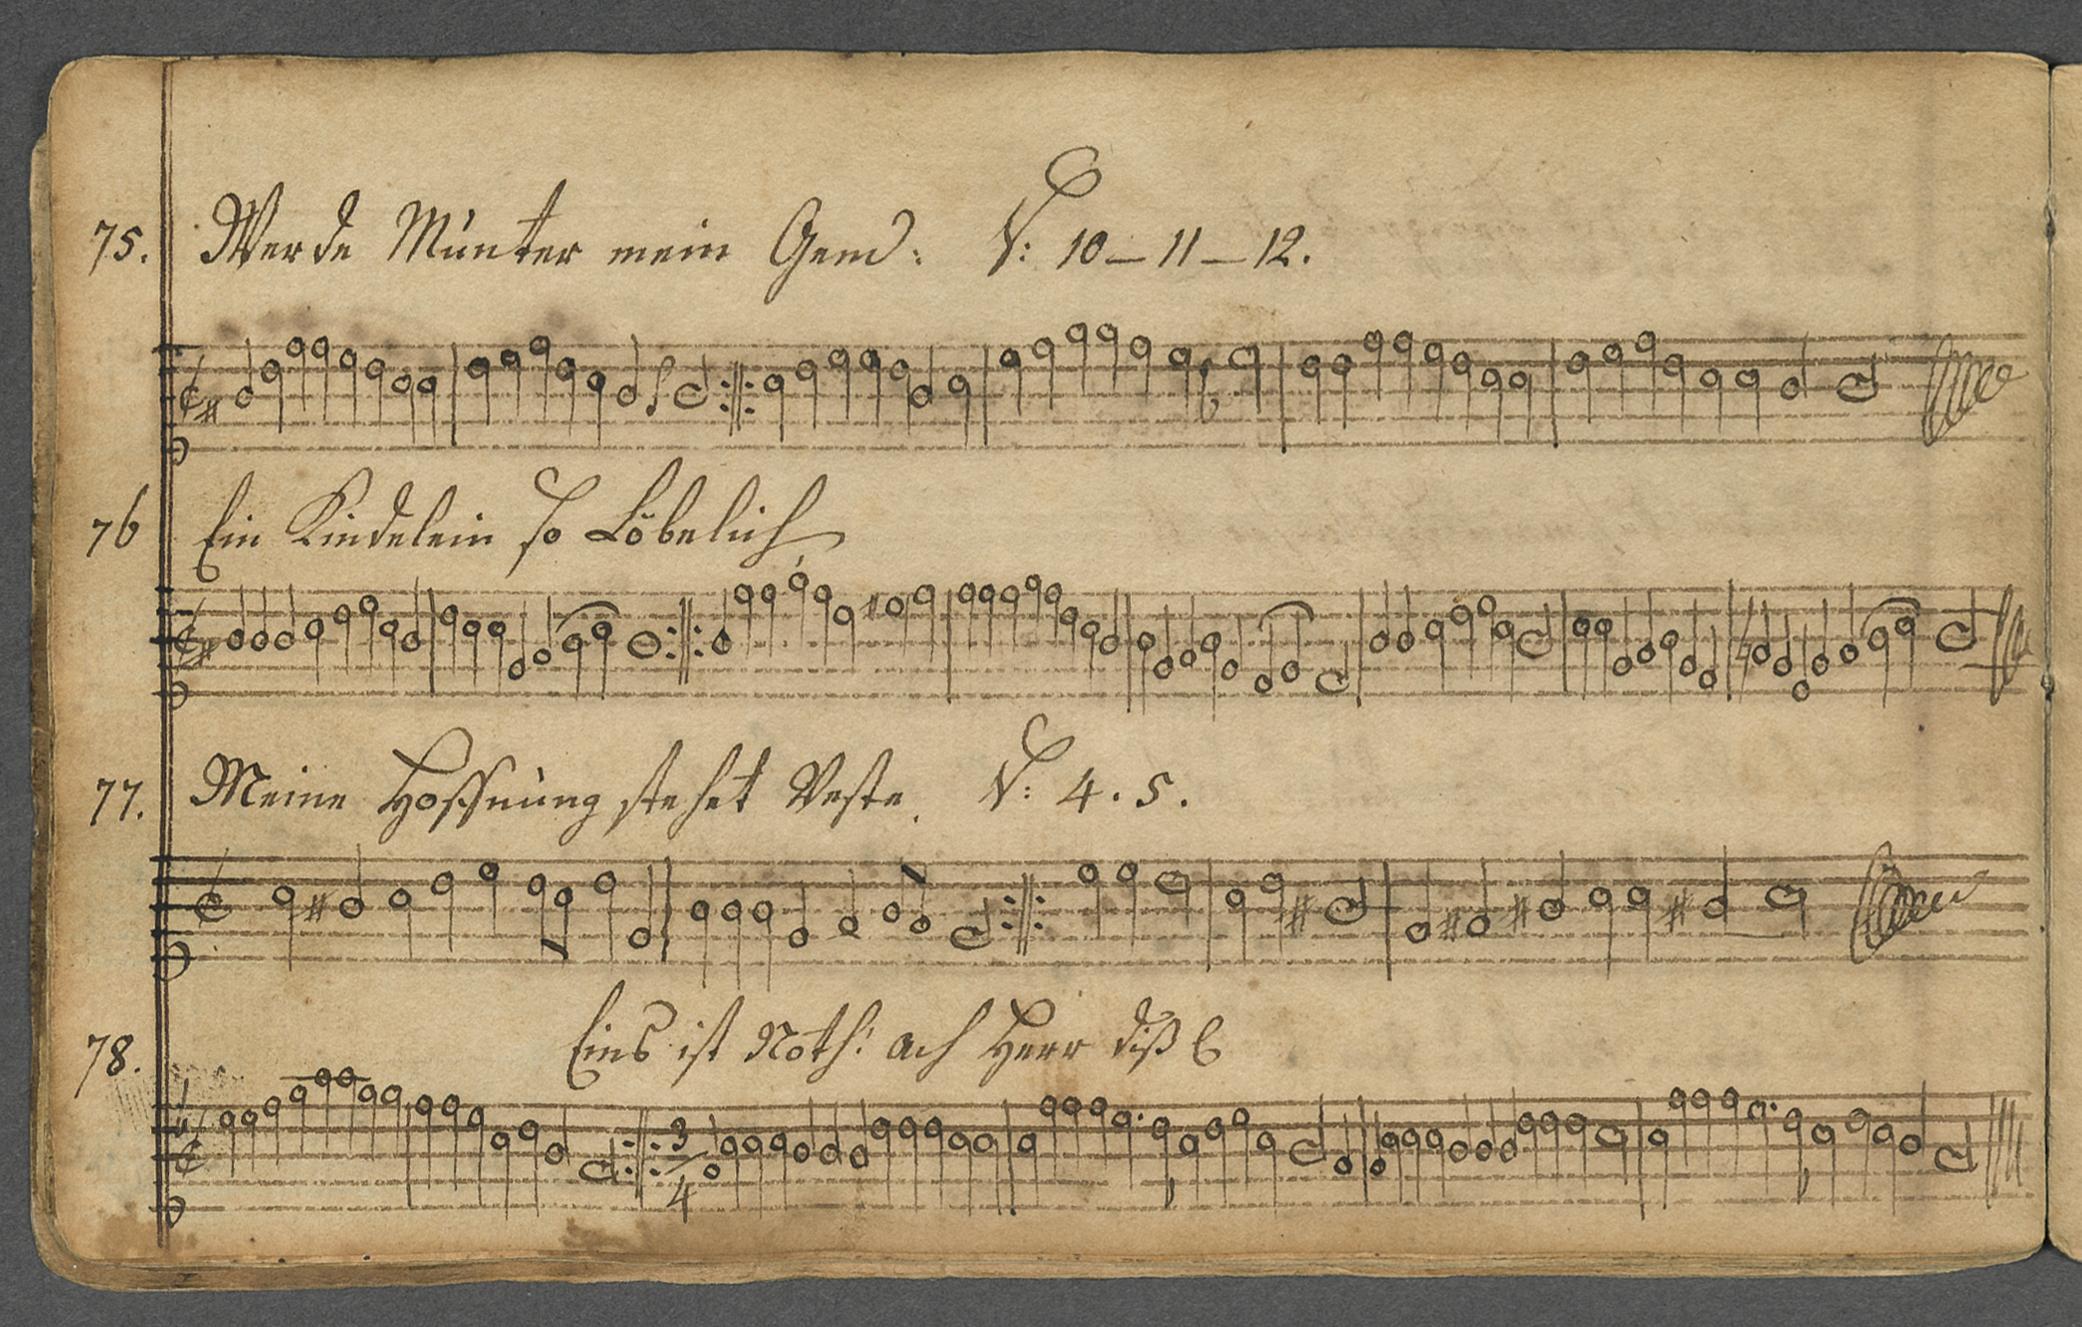 75. Werde Munter mein Gem: V: 10 – 11 – 12.
76 Ein Kindelein so Löbelich
77. Meine Hoffnung stehet Veste. V: 4. 5.
78. Eins ist Noth: ach Herr diß E
3/4